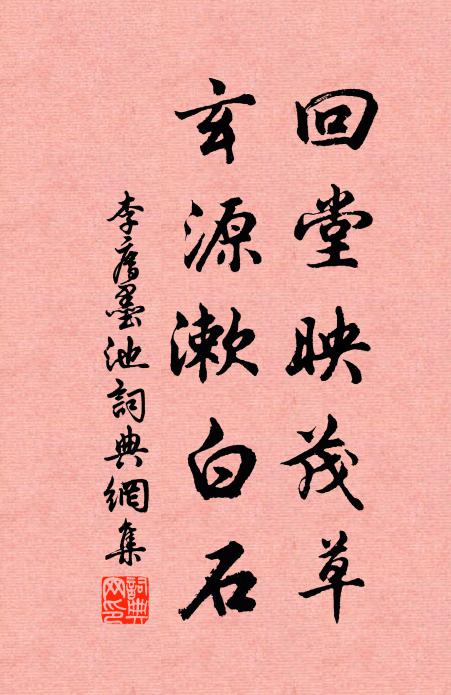 回堂映茂草
玄源漱白石
李唐墨池詞典網集
詞典網印